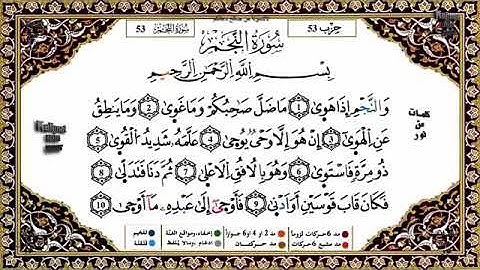 حزب 53
سُورَةُ النَّجْمِ
سُورَةُ النَّجْمِ 53
بِسْمِ اللَّهِ الرَّحْمَٰنِ الرَّحِيمِ
وَالنَّجْمِ إِذَا هَوَىٰ 1 مَا ضَلَّ صَاحِبُكُمْ وَمَا غَوَىٰ 2 وَمَا يَنطِقُ
عَنِ الْهَوَىٰ 3 إِنْ هُوَ إِلَّا وَحْيٌ يُوحَىٰ 4 عَلَّمَهُ شَدِيدُ الْقُوَىٰ 5
ذُو مِرَّةٍ فَاسْتَوَىٰ 6 وَهُوَ بِالْأُفُقِ الْأَعْلَىٰ 7 ثُمَّ دَنَا فَتَدَلَّىٰ 8
فَكَانَ قَابَ قَوْسَيْنِ أَوْ أَدْنَىٰ 9 فَأَوْحَىٰ إِلَىٰ عَبْدِهِ مَا أَوْحَىٰ 10
كلمات
من
نور
مد 6 حركات لزوما مد 2 او 4 او 6 جوازا إخفاء، ومواقع الغنة تفخيم
مد حركتان إدغام، ومالا يلفظ قلقلة